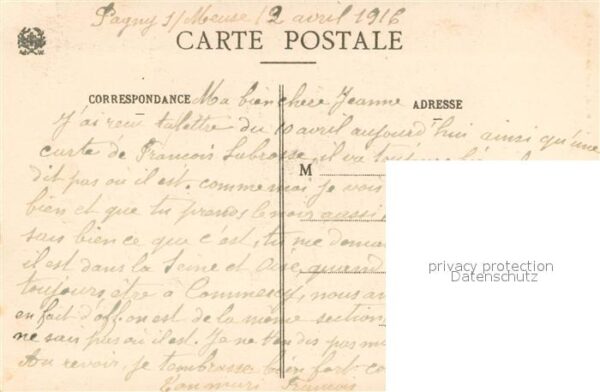 Pagny s/ Meuse 12 avril 1916
CARTE POSTALE
CORRESPONDANCE Ma bien chère Jeanne ADRESSE
J'ai reçu ta lettre du 10 avril aujourd'hui ainsi qu'une
carte de François Labrosse, il va toujours
M
dit pas où il est. comme moi je vois
bien et que tu prends le noir aussi
sais bien ce que c'est, tu me deman
il est dans la Seine et Oise, quand
toujours être à Commercy, nous
en fait d'off. on est de la même section
ne sais pas où il est. Je ne t'en dis pas
Au revoir, je t'embrasse bien fort
Ton mari François
privacy protection
Datenschutz